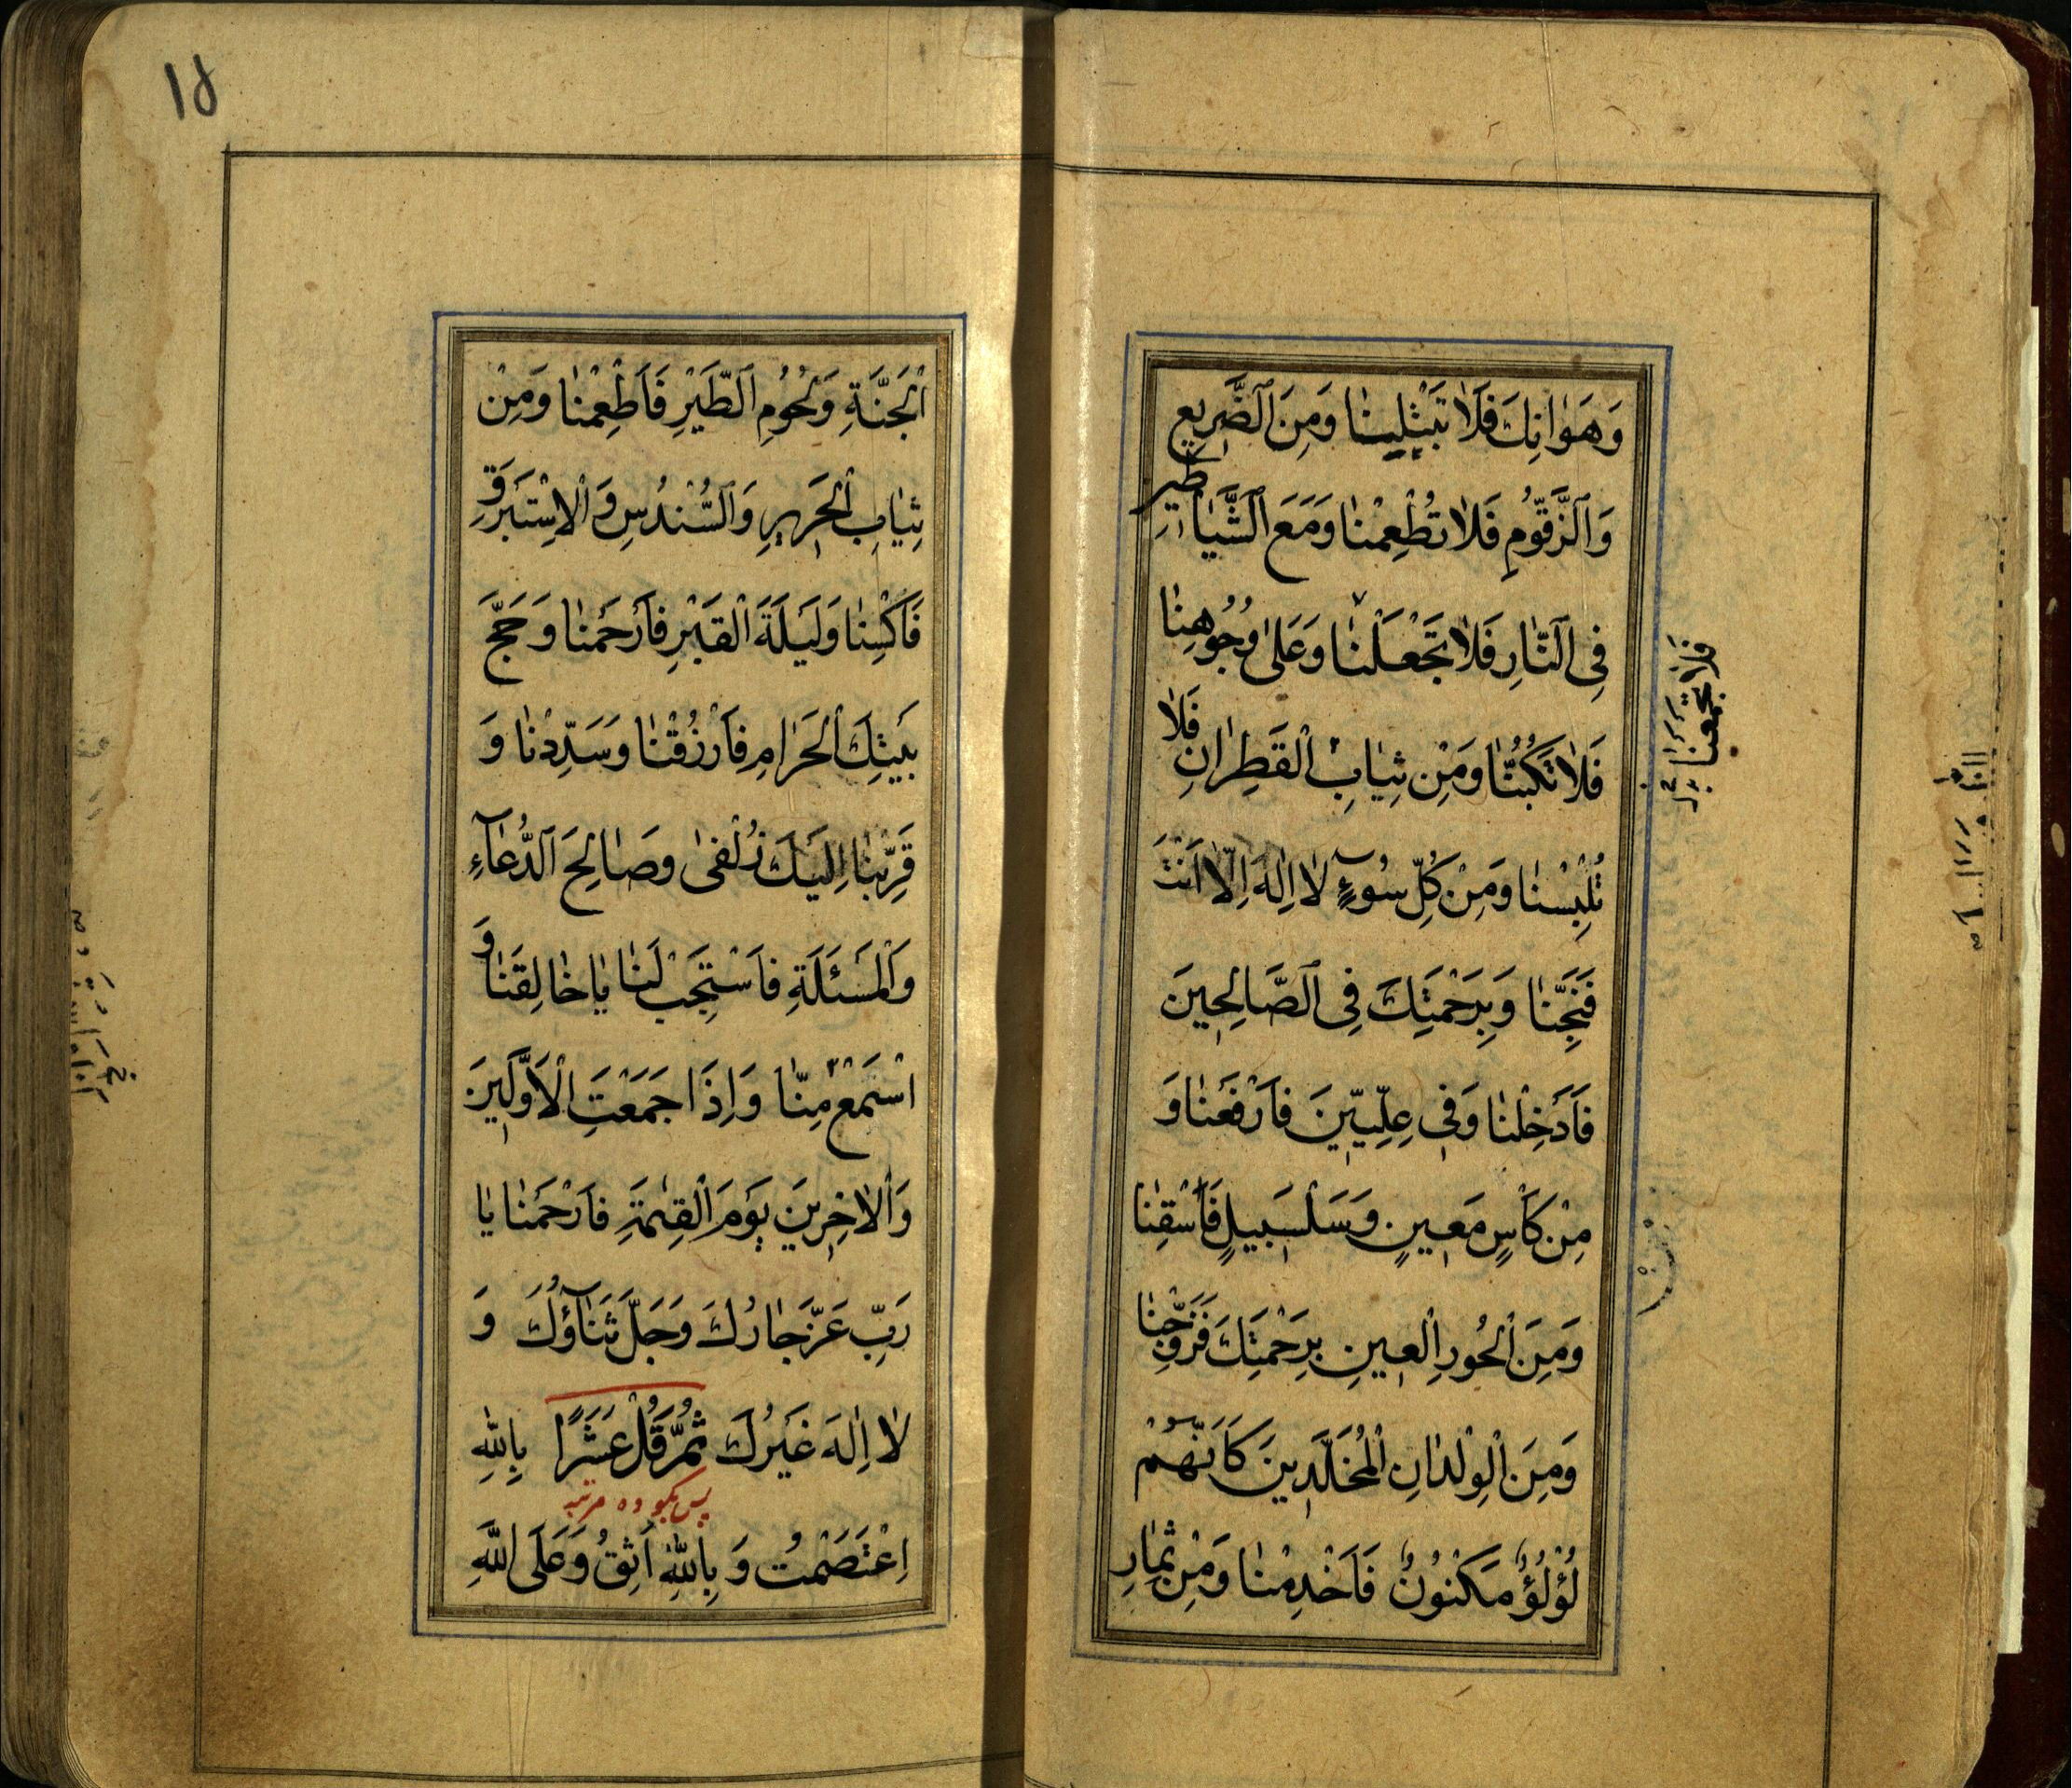 وَهَوٰانِكَ فَلاٰ تَبْتَلِينٰا وَمِنَ ٱلضَّرِيعِ
وَالزَّقُّومِ فَلاٰ تُطْعِمْنٰا وَمَعَ ٱلشَّيٰاطِينِ
فِى ٱلنّٰارِ فَلاٰ تَجْعَلْنٰا وَعَلىٰ وُجُوهِنٰا
فَلاٰ تَكُبُّنٰا وَمِنْ ثِيٰابِ ٱلْقَطِرٰانِ فَلاٰ
تُلْبِسْنٰا وَمِنْ كُلِّ سُوۤءٍ لاٰ اِلٰهَ اِلّاٰ اَنْتَ
فَنَجِّنٰا وَبِرَحْمَتِكَ فِى ٱلصّٰالِحِينَ
فَاَدْخِلْنٰا وَفِى عِلِّيِّينَ فَارْفَعْنٰا وَ
مِنْ كَأْسٍ مَعِينٍ وَسَلْسَبِيلٍ فَاسْقِنٰا
وَمِنَ ٱلْحُورِ ٱلْعِينِ بِرَحْمَتِكَ فَزَوِّجْنٰا
وَمِنَ ٱلْوِلْدٰانِ ٱلْمُخَلَّدِينَ كَاَنَّهُمْ
لُؤْلُؤٌ مَكْنُونٌ فَاَخْدِمْنٰا وَمِنْ ثِمٰارِ
فلا تجمعنا
١٥
ٱلْجَنَّةِ وَلُحُومِ ٱلطَّيْرِ فَاَطْعِمْنٰا وَمِنْ
ثِيٰابِ ٱلْحَرِيرِ وَٱلسُّنْدُسِ وَٱلْاِسْتَبْرَقِ
فَاَكْسِنٰا وَلَيْلَةَ ٱلْقَدْرِ فَاَرْحَمْنٰا وَحَجَّ
بَيْتِكَ ٱلْحَرٰامِ فَاَرْزُقْنٰا وَسَدِّدْنٰا وَ
قَرِّبْنٰا اِلَيْكَ زُلْفىٰ وَصٰالِحَ ٱلدُّعٰاۤءِ
وَٱلْمَسْئَلَةِ فَاسْتَجِبْ لَنٰا يٰا خٰالِقَنٰا وَ
اسْتَمِعْ مِنّٰا وَاِذَا جَمَعْتَ ٱلْاَوَّلِينَ
وَٱلْاٰخِرِينَ يَوْمَ ٱلْقِيٰمَةِ فَارْحَمْنٰا يٰا
رَبِّ عَزَّ جٰارُكَ وَجَلَّ ثَنٰاۤؤُكَ وَ
لاٰ اِلٰهَ غَيْرُكَ ثُمَّ قُلْ عَشْرًا بِاللّٰهِ
پس بگو ده مرتبه
اِعْتَصَمْتُ وَ بِاللّٰهِ اَثِقُ وَعَلَى اللّٰهِ